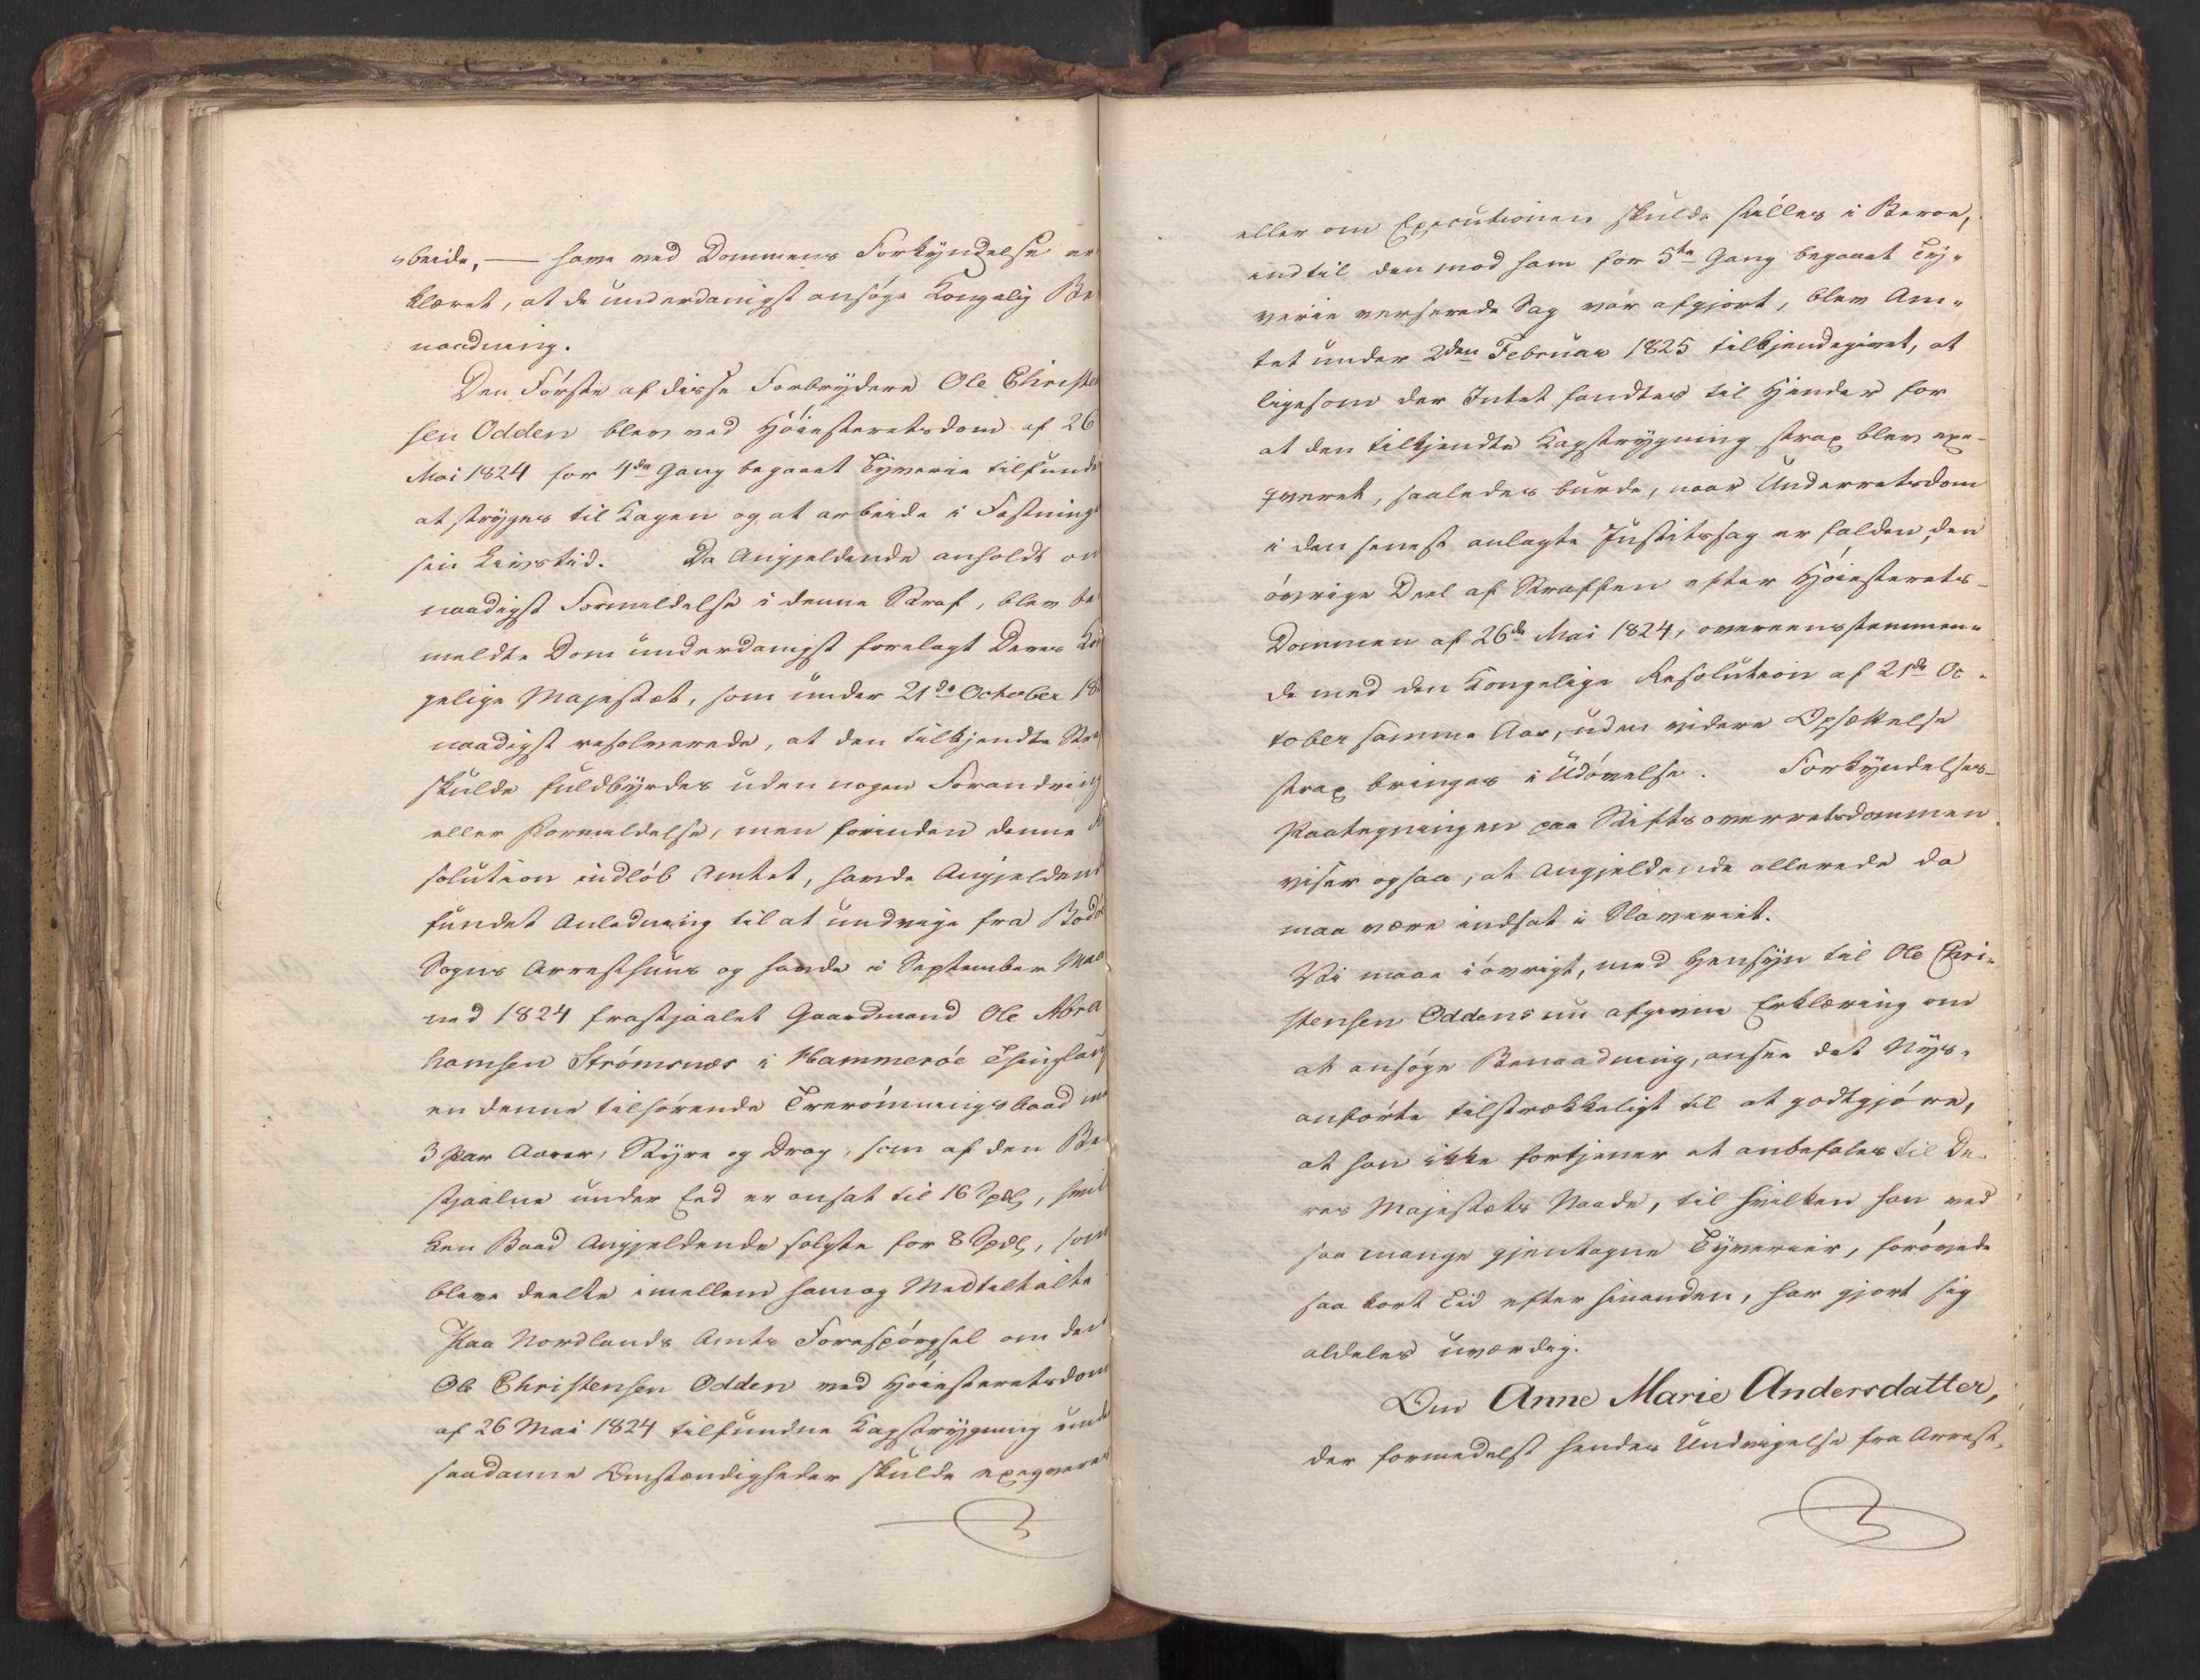 arbeide, — have ved Dommens Forkyndelse er
klæret, at de underdanigst ansøge Kongelig Be
naadning.
Den Første af disse Forbrydere Ole Christen
sen Odden blev ved Høiesteretsdom af 26
Mai 1824 for 4de Gang begaaet Tyverie tilfunde
at stryges til Kagen og at arbeide i Fæstning
sin Livstid. Da Angjeldende anholdt om
naadigst Formildelse i denne Straf, blev be
meldte Dom underdanigst forelagt Deres Kon
gelige Majestæt, som under 21de October 18
naadigst resolverede, at den tilkjendte Stra
skulde fuldbyrdes uden nogen Forandring
eller Formildelse, men forinden denne Re
solution indløb Amtet, havde Angjeldend
fundet Anledning til at undvige fra Bodø
Sogns Arresthuus og havde i September Maa
ned 1824 frastjaalet Gaardmand Ole Abra
hamsen Strømsnæs i Hammerøe Thinglaug
en denne tilhørende Trerømmingsbaad med
3 Par Aarer, Styre og Drag, som af den Be
stjaalne under Eed er ansat til 16 Spdl, hvil
ken Baad Angjeldende solgte for 8 Spdl, som
bleve deelte imellem ham og Medtiltalte
Paa Nordlands Amts Forespørgsel om den
Ole Christensen Odden ved Høiesteretsdom
af 26 Mai 1824 tilfundne Kagstrygning unde
saadanne Omstændigheder skulde exeqveres
eller om Executionen skulde stilles i Beroe,
indtil den mod ham for 5te Gang begaaet Ty-
verie verserede Sag var afgjort, blev Am-
tet under 2den Februar 1825 tilkjendegivet, at
ligesom der Intet fandtes til Hinder for
at den tilkjendte Kagstrygning strax blev exe-
qveret, saaledes burde, naar Underretsdom
i den senest anlagte Justitssag er falden, den
øvrige Deel af Straffen efter Høiesterets-
Dommen af 26de Mai 1824, overeensstemmen-
de med den Kongelige Resolution af 21de Oc-
tober samme Aar, uden videre Opsættelse
strax bringes i Udøvelse. Forkyndelses-
Paategningen paa Stiftsoverretsdommen
viser ogsaa, at Angjeldende allerede da
maa være indsat i Slaveriet.
Vi maae iøvrigt, med Hensyn til Ole Chri-
stensen Oddens nu afgivne Erklæring om
at ansøge Benaadning, ansee det Nys-
anførte tilstrækkeligt til at godtgjøre,
at han ikke fortjener at anbefales til De-
res Majestæts Naade, til hvilken han ved
saa mange gjentagne Tyverier, forøvede
saa kort Tid efter hinanden, har gjort sig
aldeles uværdig.
Om Anne Marie Andersdatter,
der formedelst hendes Undvigelse fra Arrest-